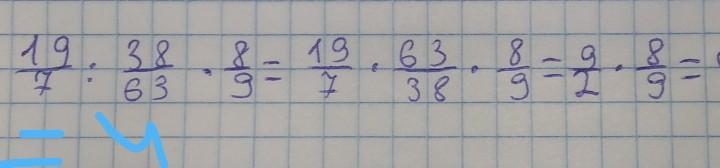 19/7 : 38/63 · 8/9 = 19/7 · 63/38 · 8/9 = 9/2 · 8/9 =
= 4